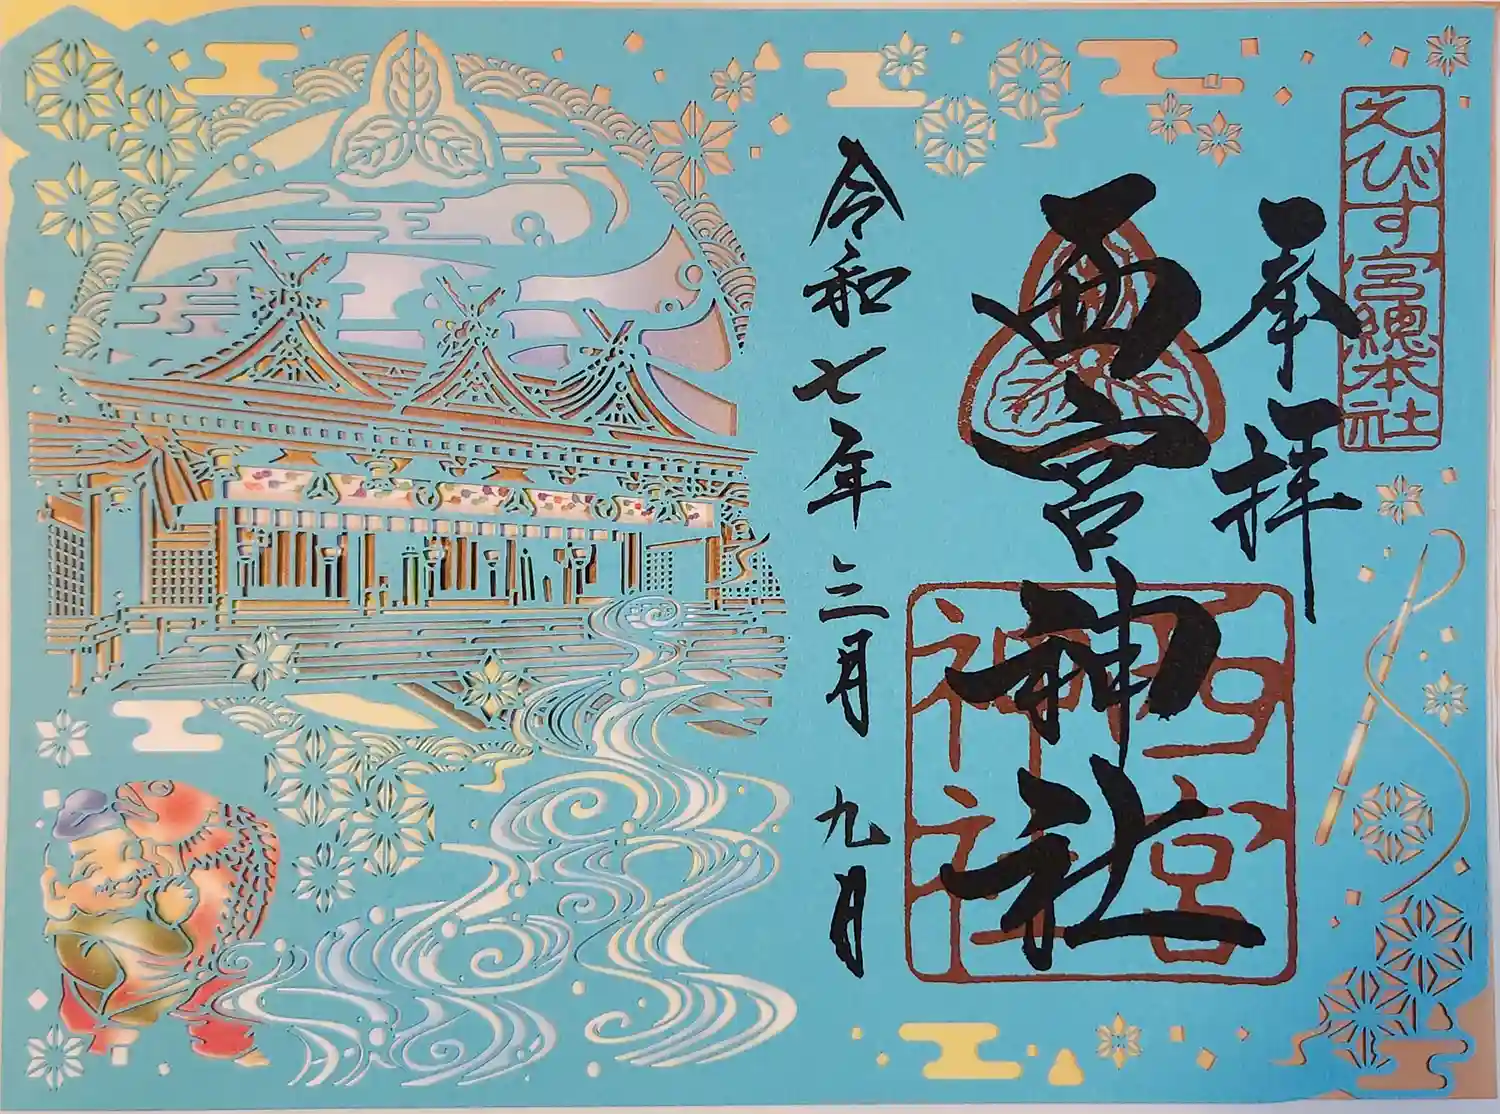 えびす宮總本社
奉拝
西宮神社
西宮
神社
令和七年三月九日